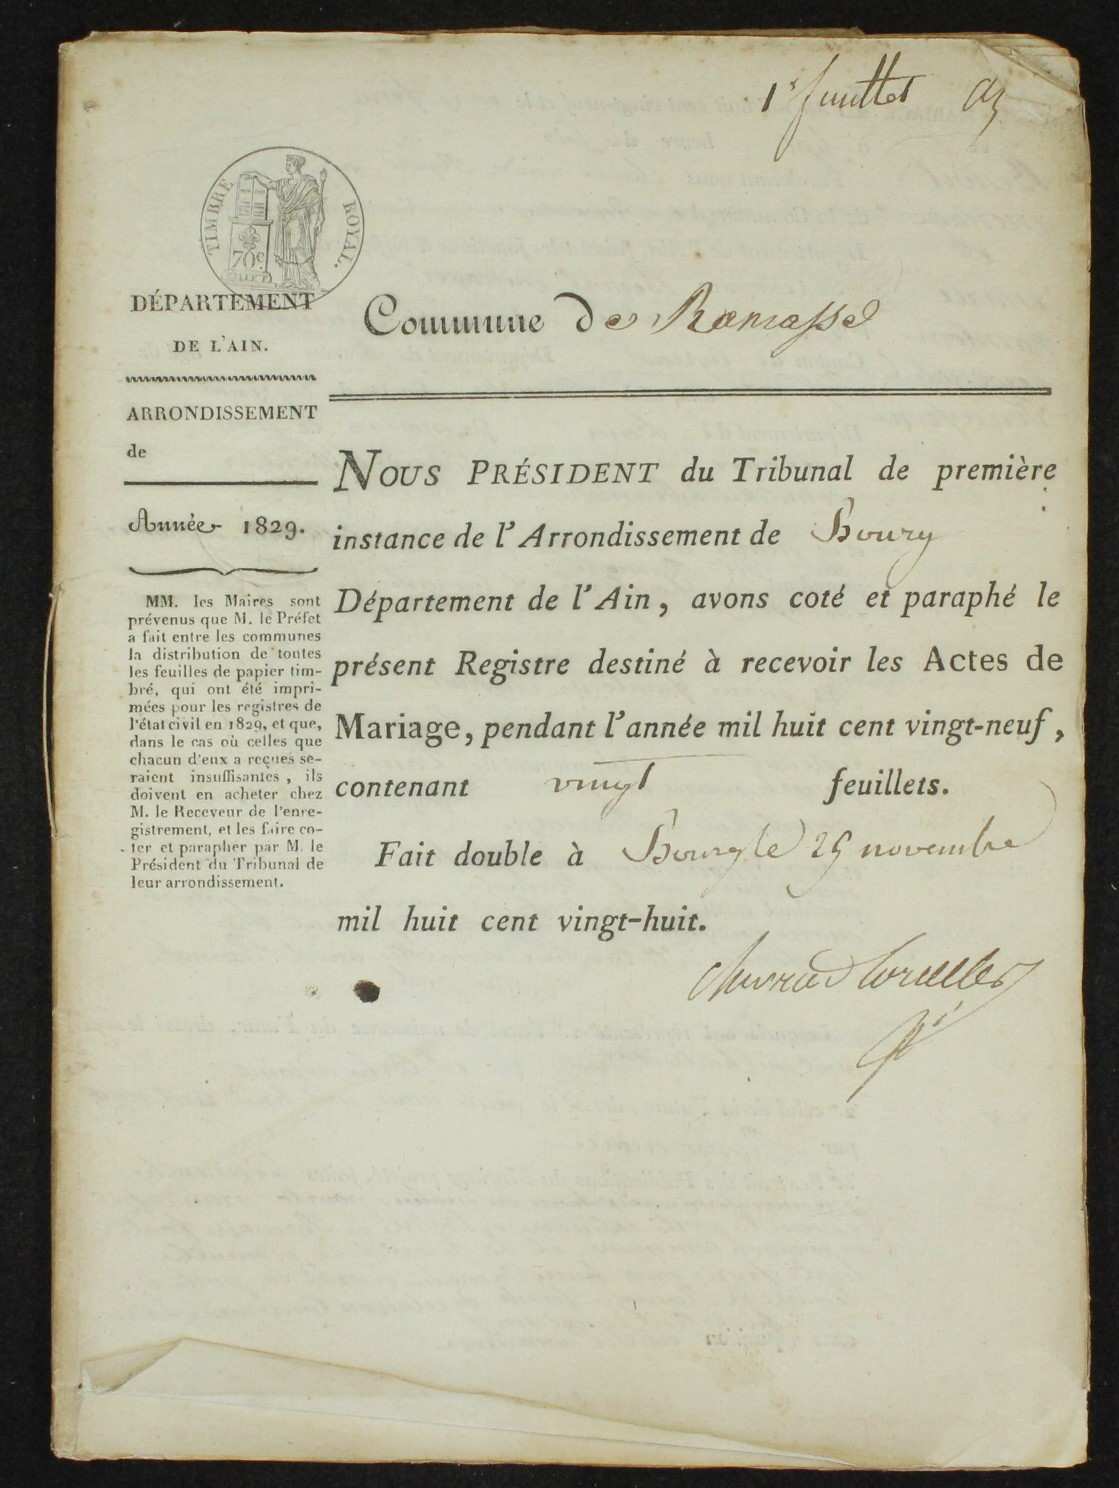 1er feuillet
TIMBRE ROYAL.
70c
DÉPARTEMENT
DE L'AIN.
ARRONDISSEMENT
de
Année 1829.
MM. les Maires sont
prévenus que M. le Préfet
a fait entre les communes
la distribution de toutes
les feuilles de papier tim-
bré, qui ont été impri-
mées pour les registres de
l'état civil en 1829, et que,
dans le cas où celles que
chacun d'eux a reçues se-
raient insuffisantes, ils
doivent en acheter chez
M. le Receveur de l'enre-
gistrement, et les faire co-
ter et parapher par M. le
Président du Tribunal de
leur arrondissement.
Commune de Ramasse
NOUS PRÉSIDENT du Tribunal de première
instance de l'Arrondissement de Bourg
Département de l'Ain, avons coté et paraphé le
présent Registre destiné à recevoir les Actes de
Mariage, pendant l'année mil huit cent vingt-neuf,
contenant vingt feuillets.
Fait double à Bourg le 25 novembre
mil huit cent vingt-huit.